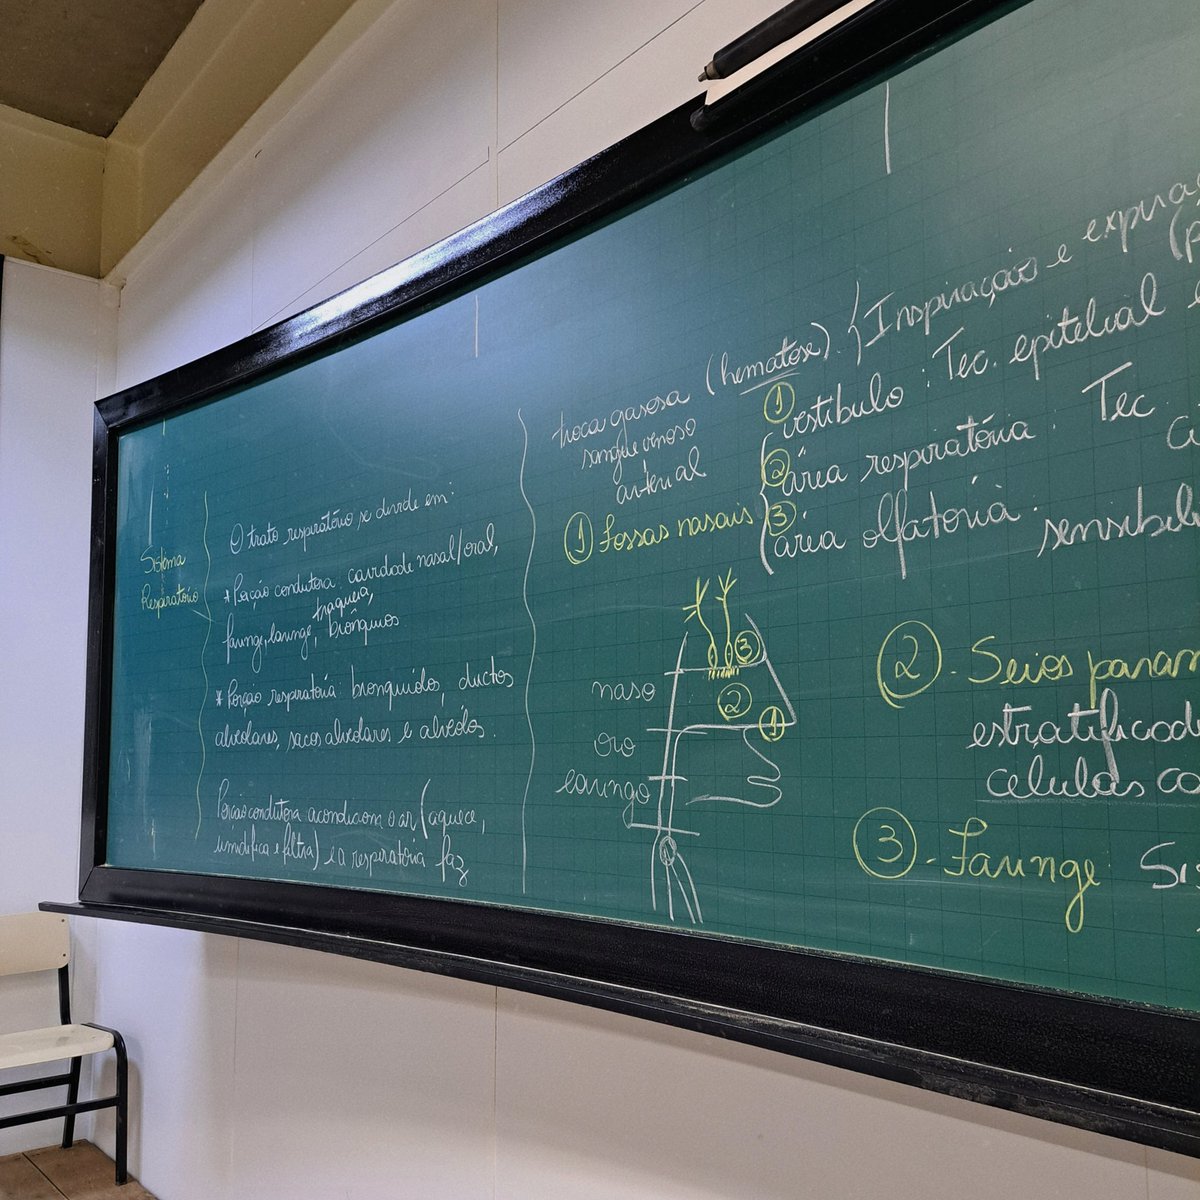 Sistema
Respiratório
O trato respiratório se divide em:
* Porção condutora: cavidade nasal/oral,
traqueia,
faringe, laringe, brônquios
* Porção respiratória: bronquíolos, ductos
alveolares, sacos alveolares e alvéolos.
Porção condutora acondiciona o ar (aquece,
umidifica e filtra) e a respiratória faz
troca gasosa (hematose). { Inspiração e expira
sangue venoso
arterial
① Fossas nasais
① vestíbulo: Tec. epitelial
② área respiratória. Tec.
③ área olfatória.
sensibil
naso
oro
laringo
③
②
①
② - Seios paran
estratificad
celulas
③ - Faringe: